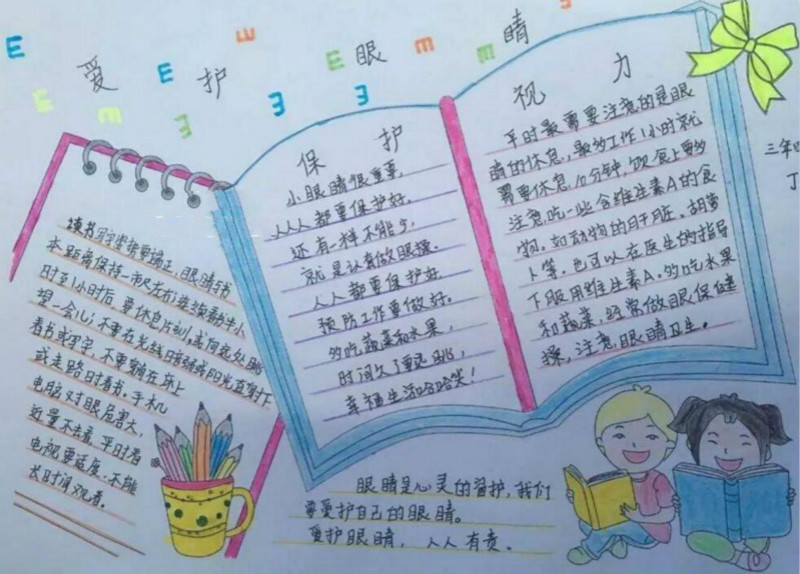 E E E E m m m m m m
爱护眼睛
三年
丁
保护
小眼睛很重要,
人人都要保护好.
还有一样不能少,
就是认真做眼操.
人人都要保护好
预防工作要做好。
多吃蔬菜和水果,
时间久了要远眺,
幸福生活哈哈笑!
视力
平时最需要注意的是眼
睛的休息,最多工作1小时就
需要休息10分钟,饮食上要多
注意吃一些含维生素A的食
物.如动物的肝脏、胡萝
卜等.也可以在医生的指导
下服用维生素A.多吃水果
和蔬菜,经常做眼保健
操,注意眼睛卫生。
读书写字坐势要端正,眼睛与书
本距离保持一市尺左右;连续看书半小
时至1小时后,要休息片刻,或向远处眺
望一会儿;不要在光线暗弱或阳光直射下
看书或写字,不要躺在床上
或走路时看书。手机
电脑对眼危害大,
近量不去看.平时看
电视要适度.不能
长时间观看。
眼睛是心灵的窗护,我们
要爱护自己的眼睛。
爱护眼睛,人人有责。